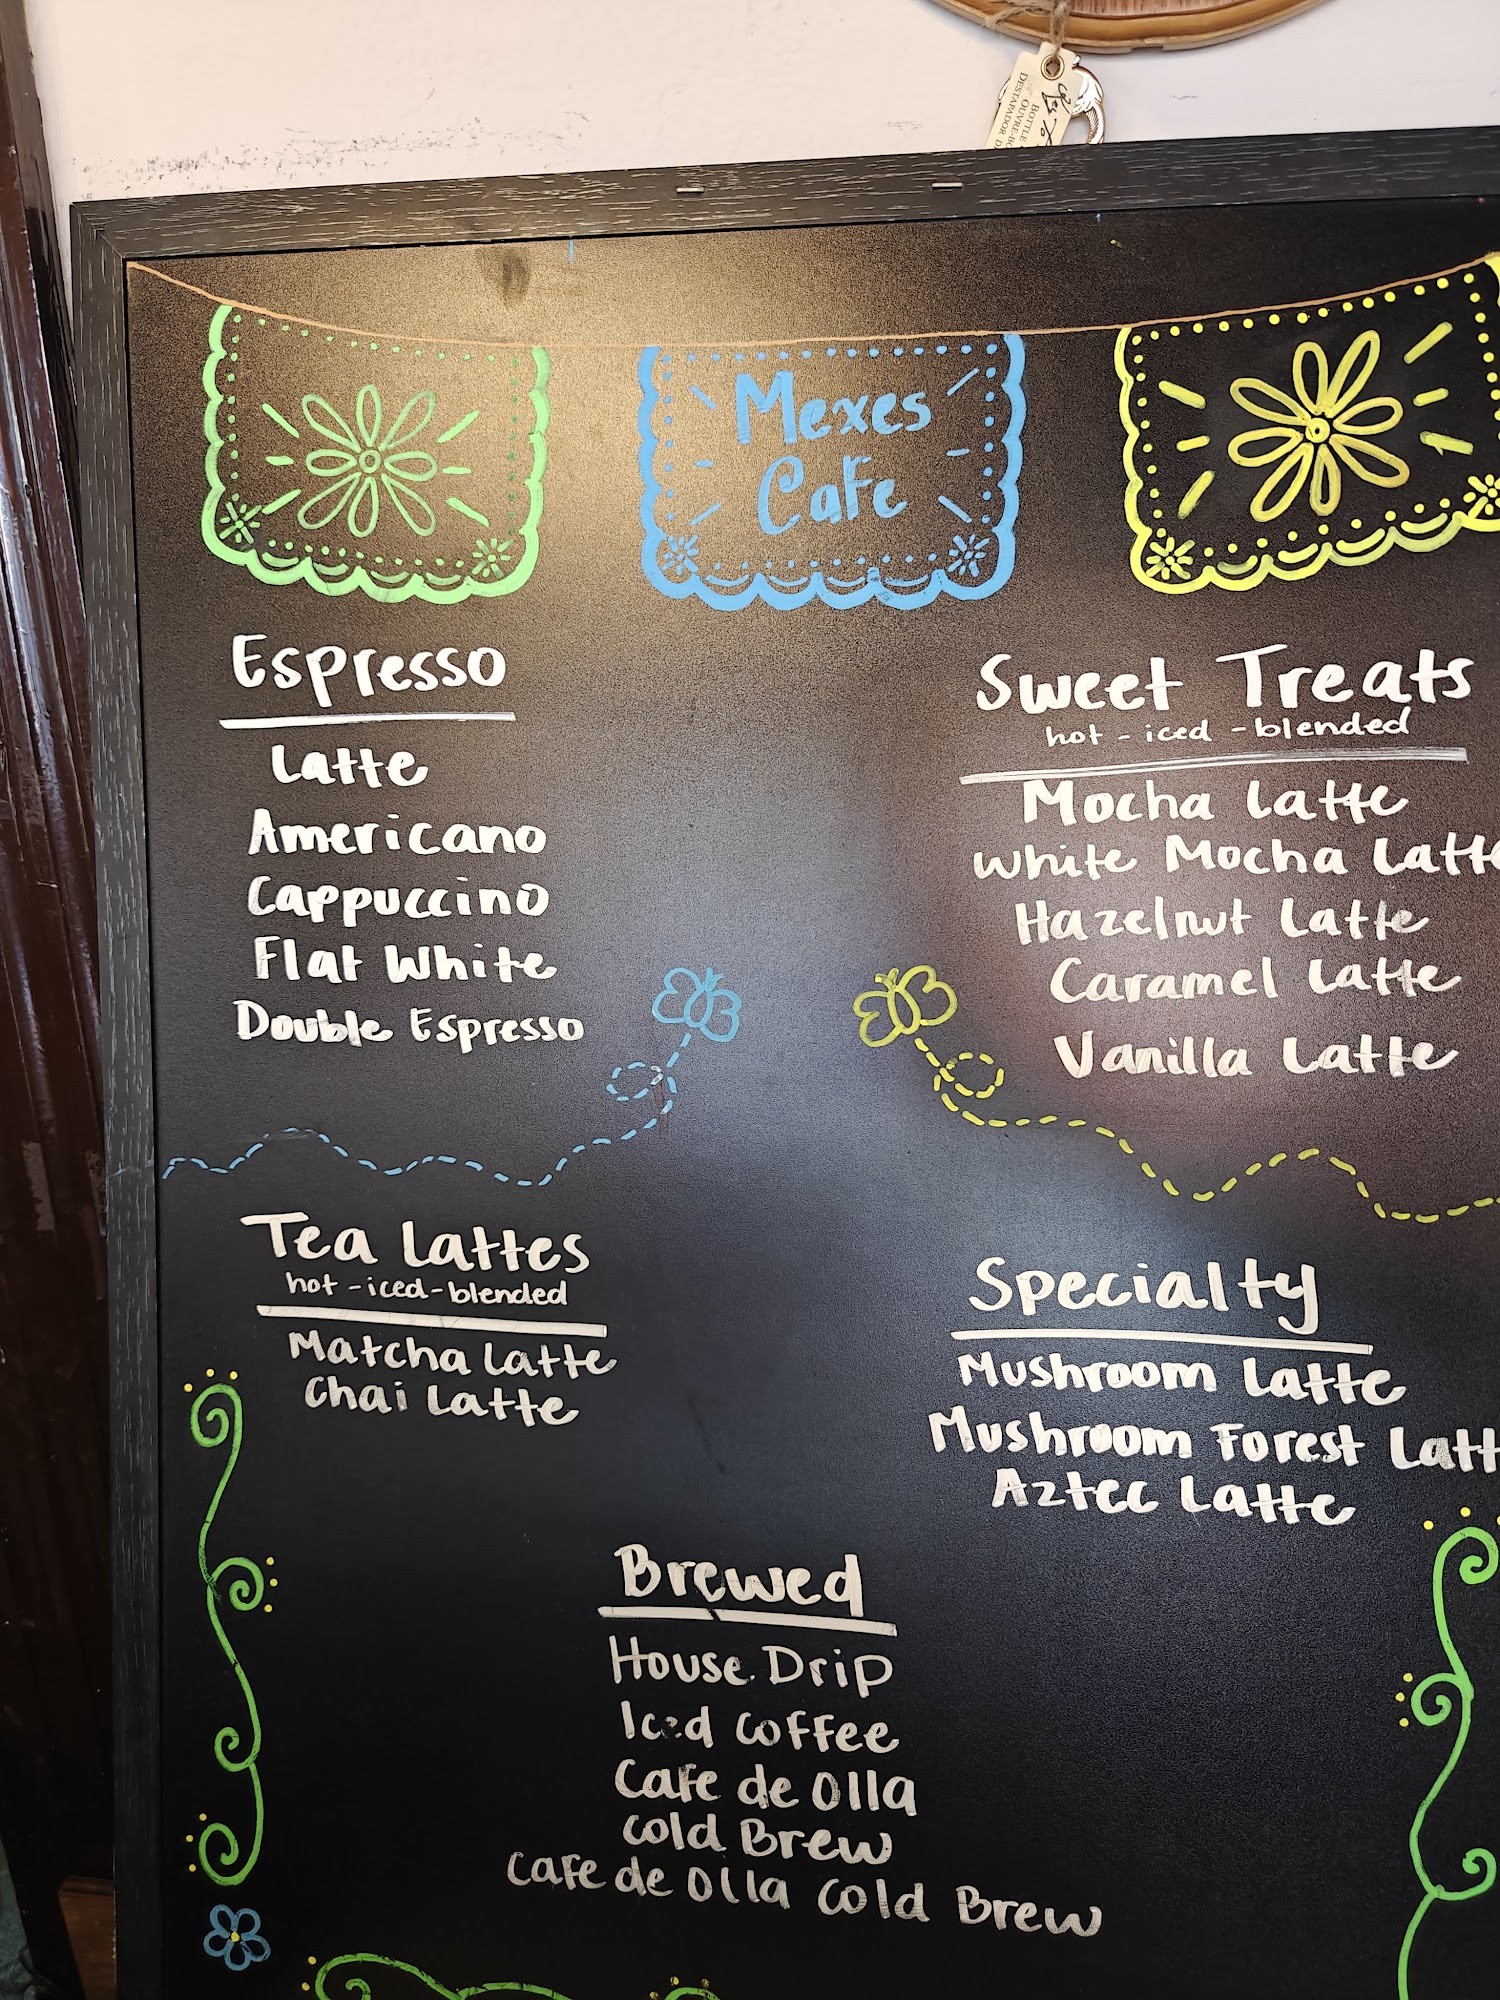 BOTTLE
OUVRE-BO
DESTAPADOR D
Mexes
Cafe
Espresso
Latte
Americano
Cappuccino
Flat White
Double Espresso
Sweet Treats
hot - iced - blended
Mocha Latte
White Mocha Latte
Hazelnut Latte
Caramel Latte
Vanilla Latte
Tea Lattes
hot - iced - blended
Matcha Latte
Chai Latte
Specialty
Mushroom Latte
Mushroom Forest Latt
Aztec Latte
Brewed
House Drip
Iced Coffee
Cafe de Olla
Cold Brew
Cafe de Olla Cold Brew